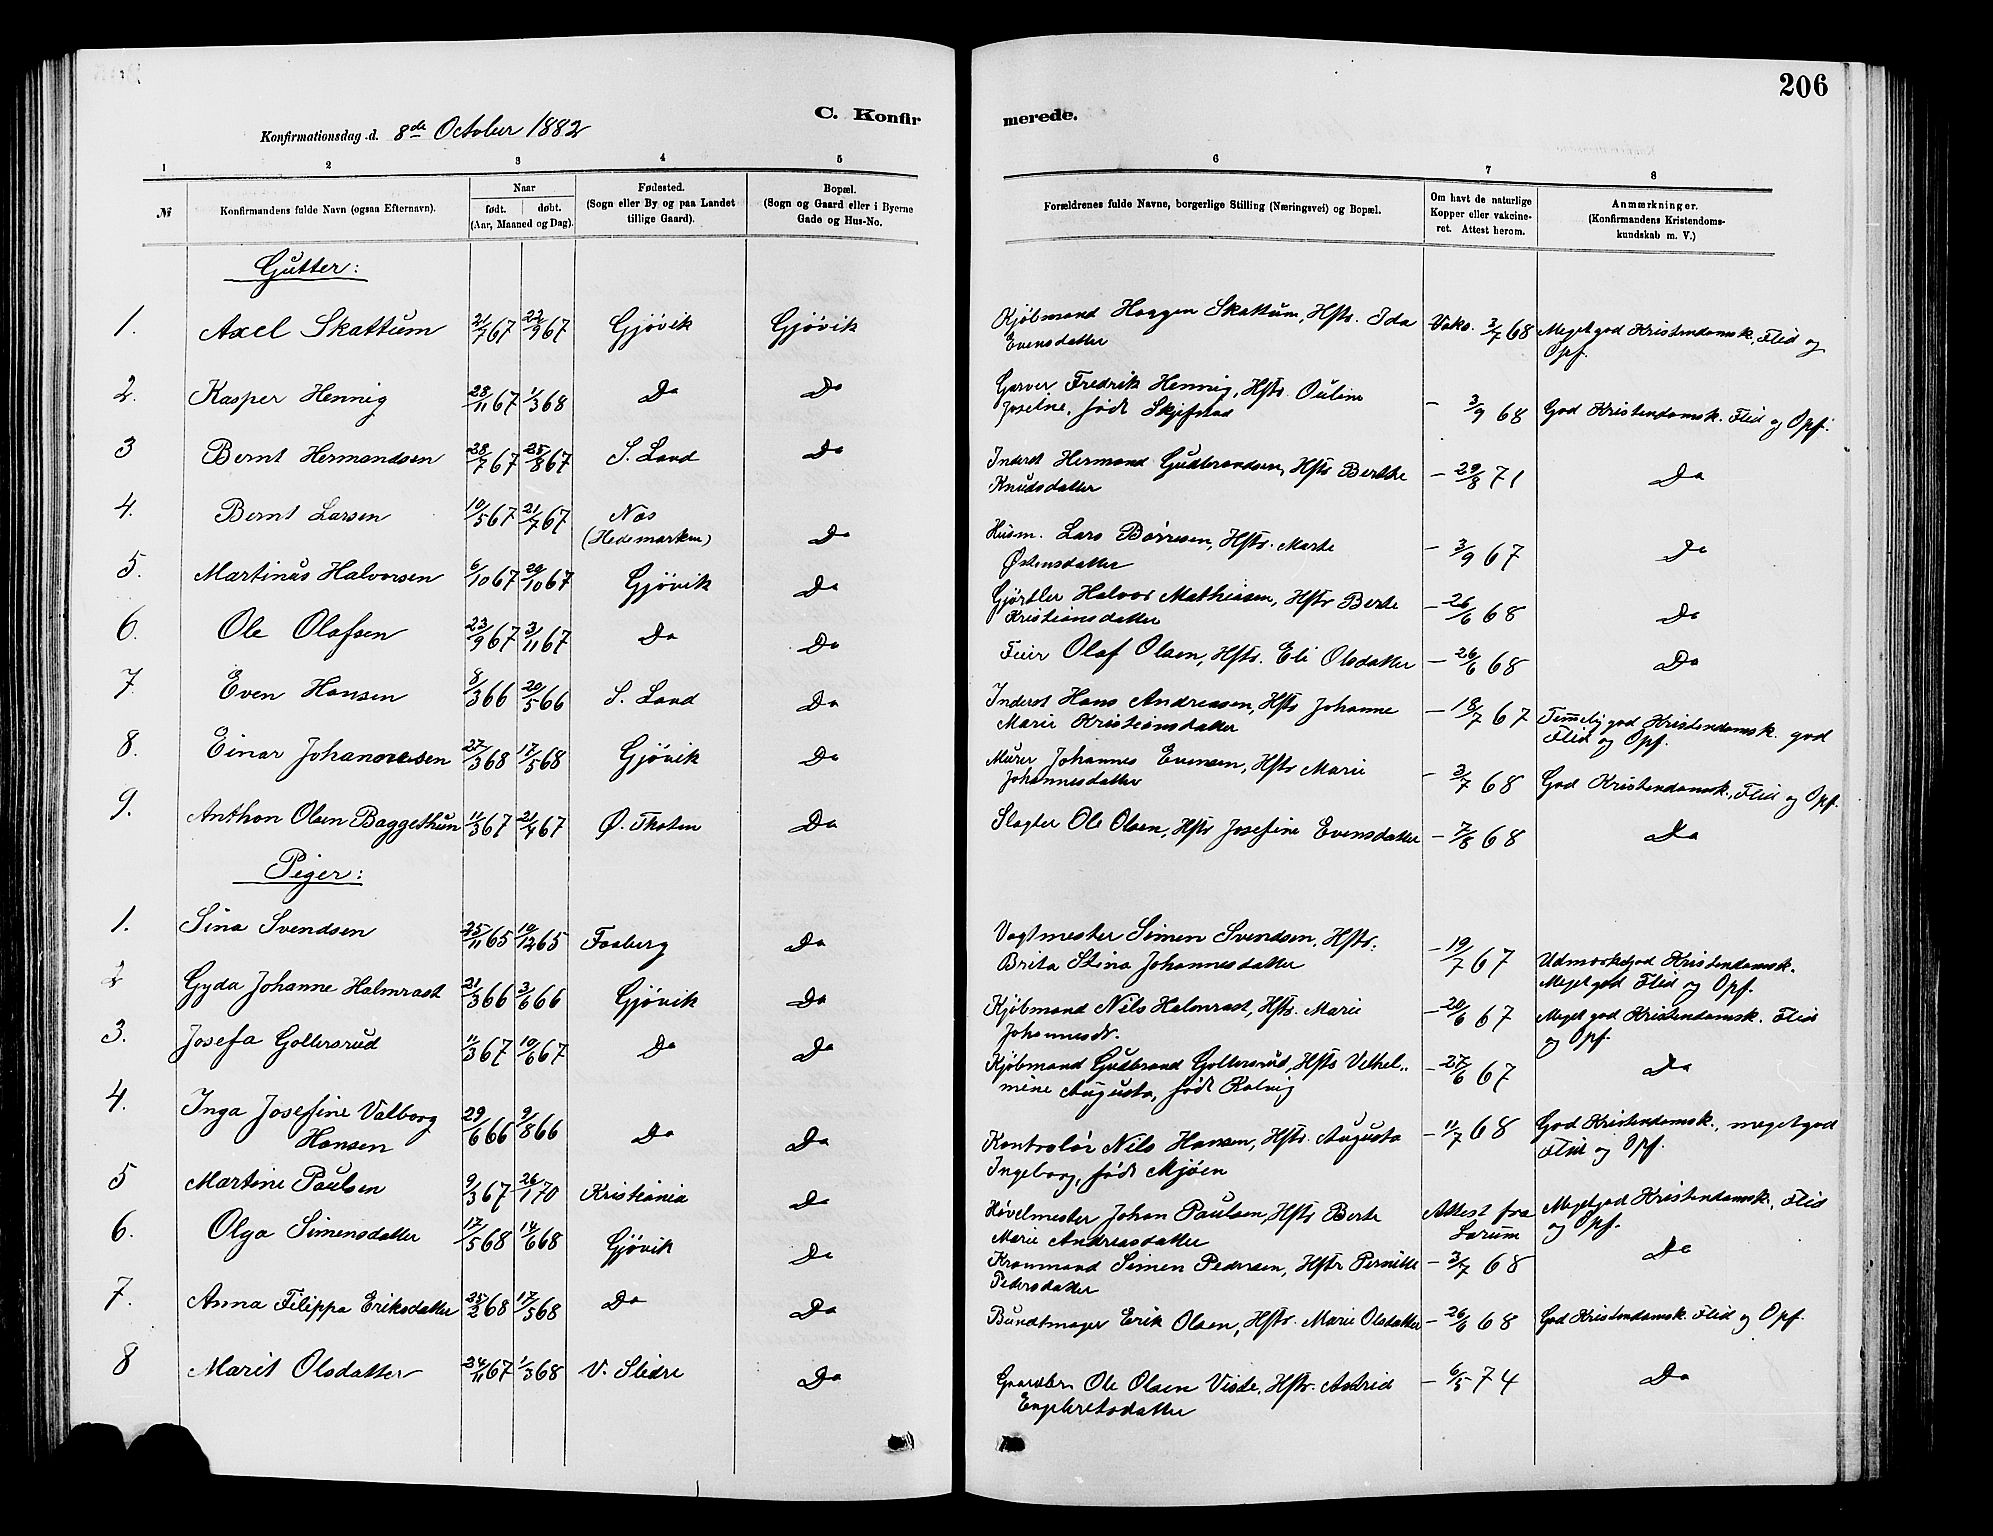 206
C. Konfirmerede.
Konfirmationsdag d. 8de October 1882
1 2 3 4 5 6 7 8
№
Konfirmandens fulde Navn (ogsaa Efternavn).
Naar
født. døbt.
(Aar, Maaned og Dag).
Fødested.
(Sogn eller By og paa Landet
tillige Gaard).
Bopæl.
(Sogn og Gaard eller i Byerne
Gade og Hus-No.
Forældrenes fulde Navne, borgerlige Stilling (Næringsvei) og Bopæl.
Om havt de naturlige
Kopper eller vakcine-
ret. Attest herom.
Anmærkninger.
(Konfirmandens Kristendoms-
kundskab m. V.)
Gutter:
1. Axel Skattum 21/7 67 22/9 67 Gjøvik Gjøvik Kjøbmand Haagen Skattum, Hstr. Ida Vakc. 3/7 68 Meget god Kristendomsk., Flid og
Evensdatter Opf.
2. Kasper Hennig 23/11 67 1/3 68 Do Do Garver Fredrik Hennig, Hstr. Ouline
født Skjefstad — 3/9 68 God Kristendomsk. Flid og Opf.
3 Bernt Hermandsen 28/7 67 25/8 67 S. Land Do Inderst Hermand Gudbrandsen, Hstr Berthe — 29/8 71 Do
Knudsdatter
4. Bernt Larsen 10/5 67 21/7 67 Næs
(Hedemarken) Do Husm. Lars Børresen, Hstr. Marte — 3/9 67 Do
Østensdatter
5. Martinus Halvorsen 6/10 67 20/10 67 Gjøvik Do Gjørtler Halvor Mathiesen, Hstr Berte — 26/6 68 Do
Kristiansdatter
6. Ole Olafsen 23/9 67 3/11 67 Do Do Feier Olaf Olsen, Hstr. Eli Olsdatter — 26/6 68 Do
7. Even Hansen 8/3 66 20/5 66 S. Land Do Inderst Hans Andreassen, Hstr Johanne — 18/7 67 Temmelig god Kristendomsk. god
Marie Kristiansdatter Flid og Opf.
8. Einar Johannessen 27/3 68 17/5 68 Gjøvik Do Murer Johannes Evensen, Hstr Marie — 3/7 68 God Kristendomsk., Flid og Opf.
Johannesdatter
9. Anthon Olsen Baggethun 11/3 67 21/4 67 Ø. Thoten Do Slagter Ole Olsen, Hstr Josefine Evensdatter — 7/8 68 Do
Piger:
1. Sina Svendsen 25/11 65 10/12 65 Faaberg Do Vagtmester Simen Svendsen, Hstr. — 19/7 67 Udmærket god Kristendomsk.
Brita Stina Johannesdatter Meget god Flid og Opf.
2 Gyda Johanne Halmrast 21/3 66 3/6 66 Gjøvik Do Kjøbmand Nils Halmrast, Hstr. Marie — 20/6 67 Meget god Kristendomsk. Flid
Johannesdr. og Opf.
3. Josefa Gollersrud 11/3 67 10/6 67 Do Do Kjøbmand Gudbrand Gollersrud, Hstr Vilhel- — 27/6 67 Do
mine Augusta, født Kolvig
4. Inga Josefine Valborg
Hansen 29/6 66 9/8 66 Do Do Kontrolør Nils Hansen, Hstr. Augusta — 11/7 68 God Kristendomsk., meget god
Ingeborg, født Mjøen Flid og Opf.
5 Martine Paulsen 9/3 67 26/1 70 Kristiania Do Høvelmester Johan Paulsen, Hstr Berte Attest fra Meget god Kristendomsk., Flid
Marie Andreasdatter Sørum og Opf.
6. Olga Simensdatter 17/5 68 14/6 68 Gjøvik Do Kranmand Simen Pedersen, Hstr Pernille — 3/7 68 Do
Pedersdatter
7. Anna Filippa Eriksdatter 25/2 68 17/5 68 Do Do Bundtmager Erik Olsen, Hstr. Marie Olsdatter — 26/6 68 God Kristendomsk. Flid og Opf.
8 Marit Olsdatter 24/11 67 1/3 68 V. Slidre Do Gaardbr. Ole Olsen Visde, Hstr. Astrid — 6/5 74 Do
Engebretsdatter